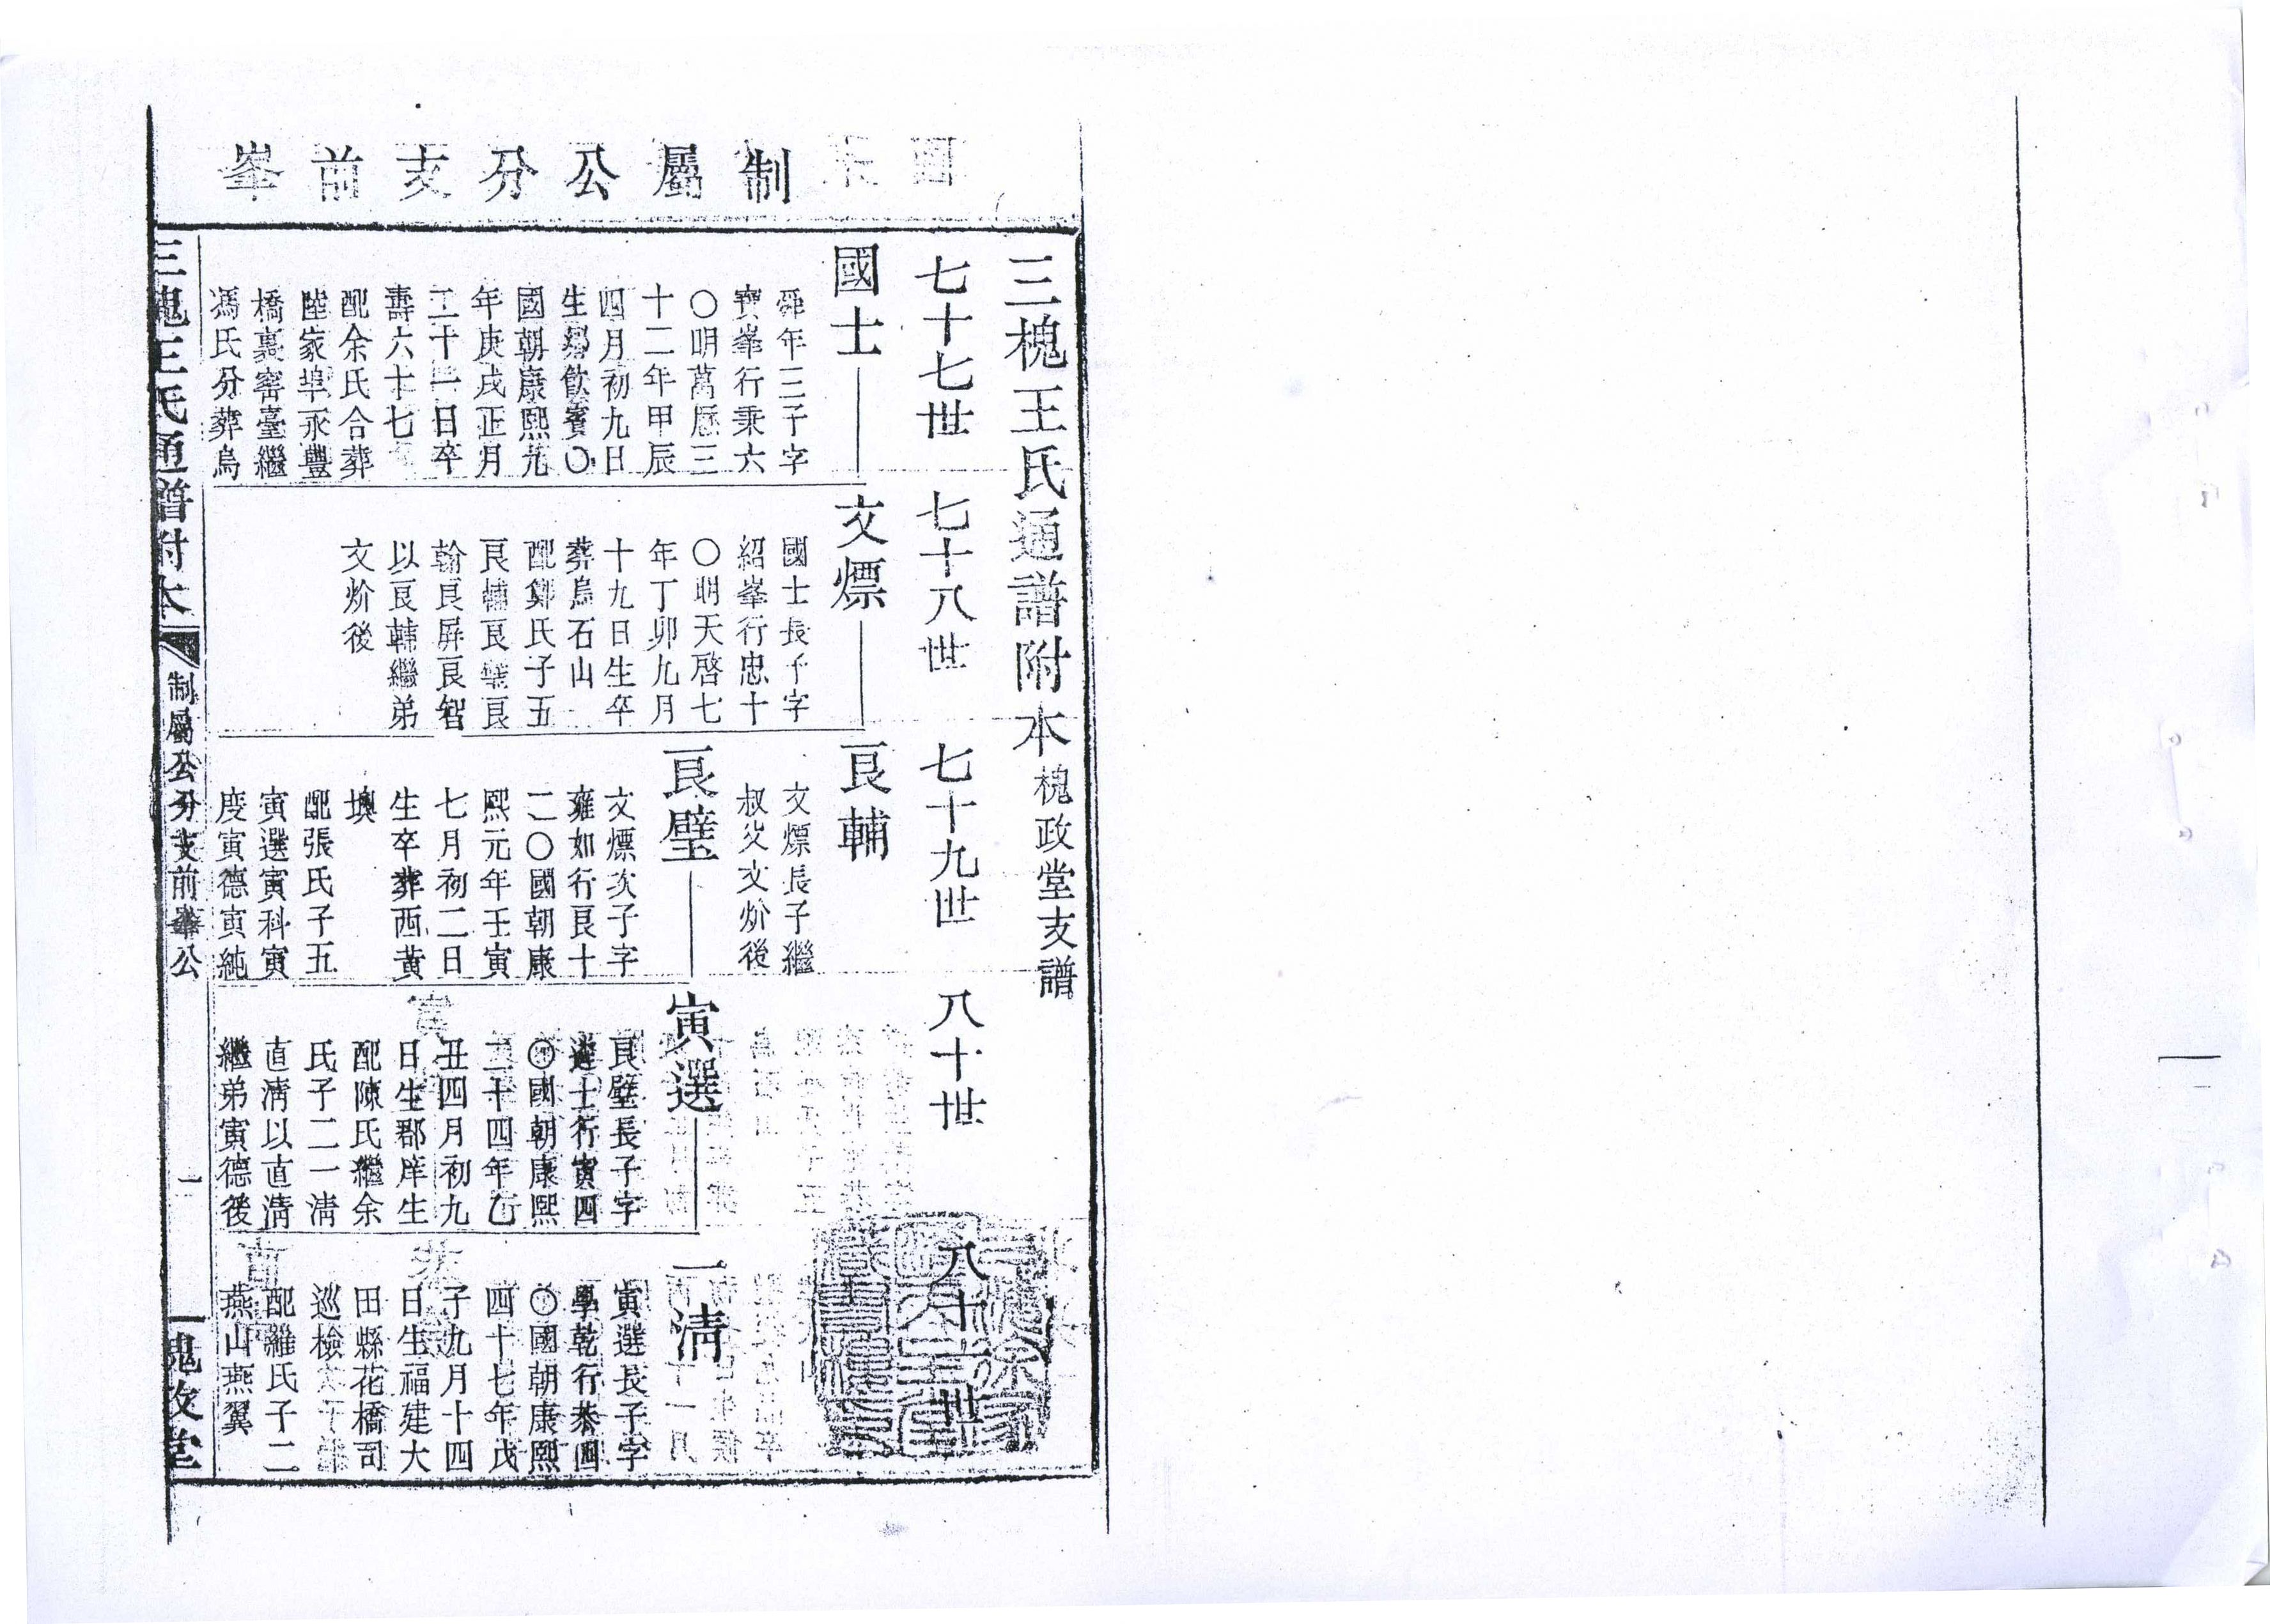 制屬公分支前峯
三槐王氏通譜附本 槐政堂支譜
七十七世
七十八世
七十九世
八十世
八十一世
國士
舜年三子字
寶峯行秉六
〇明萬曆三
十二年甲辰
四月初九日
生鄉飲賓〇
國朝康熙九
年庚戌正月
二十一日卒
壽六十七
配余氏合葬
陸家埠永豐
橋裏窰臺繼
馮氏分葬烏
文熛
國士長子字
紹峯行忠十
〇明天啓七
年丁卯九月
十九日生卒
葬烏石山
配鄭氏子五
良輔良璧良
翰良屏良智
以良輔繼弟
文炌後
良輔
文熛長子繼
叔父文炌後
良璧
文熛次子字
雍如行良十
二〇國朝康
熙元年壬寅
七月初二日
生卒葬西黃
墺
配張氏子五
寅選寅科寅
度寅德寅純
寅選
良璧長子字
遴士行寅四
〇國朝康熙
二十四年乙
丑四月初九
日生郡庠生
配陳氏繼余
氏子二一清
直清以直清
繼弟寅德後
一清
寅選長子字
學乾行恭四
〇國朝康熙
四十七年戊
子九月十四
日生福建大
田縣花橋司
巡檢
配雒氏子二
燕山燕翼
三槐王氏通譜附本
制屬公分支前峯公
一
槐政堂